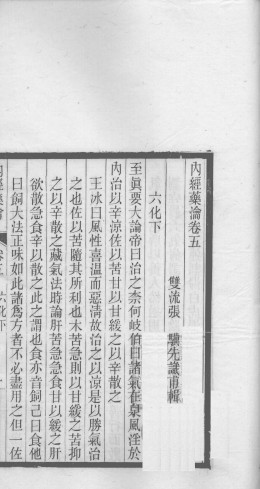 內經藥瀹卷五
雙流張 驥先識甫輯
六化下
至眞要大論帝曰治之奈何岐伯曰諸氣在泉風淫於
內治以辛涼佐以苦甘以甘緩之以辛散之
王冰曰風性喜溫而惡清故治之以涼是以勝氣治
之也佐以苦隨其所利也木苦急則以甘緩之苦抑
之以辛散之藏氣法時論肝苦急急食甘以緩之肝
欲散急食辛以散之此之謂也食亦音飼己曰食他
曰飼大法正味如此諸爲方者不必盡用之但一佐